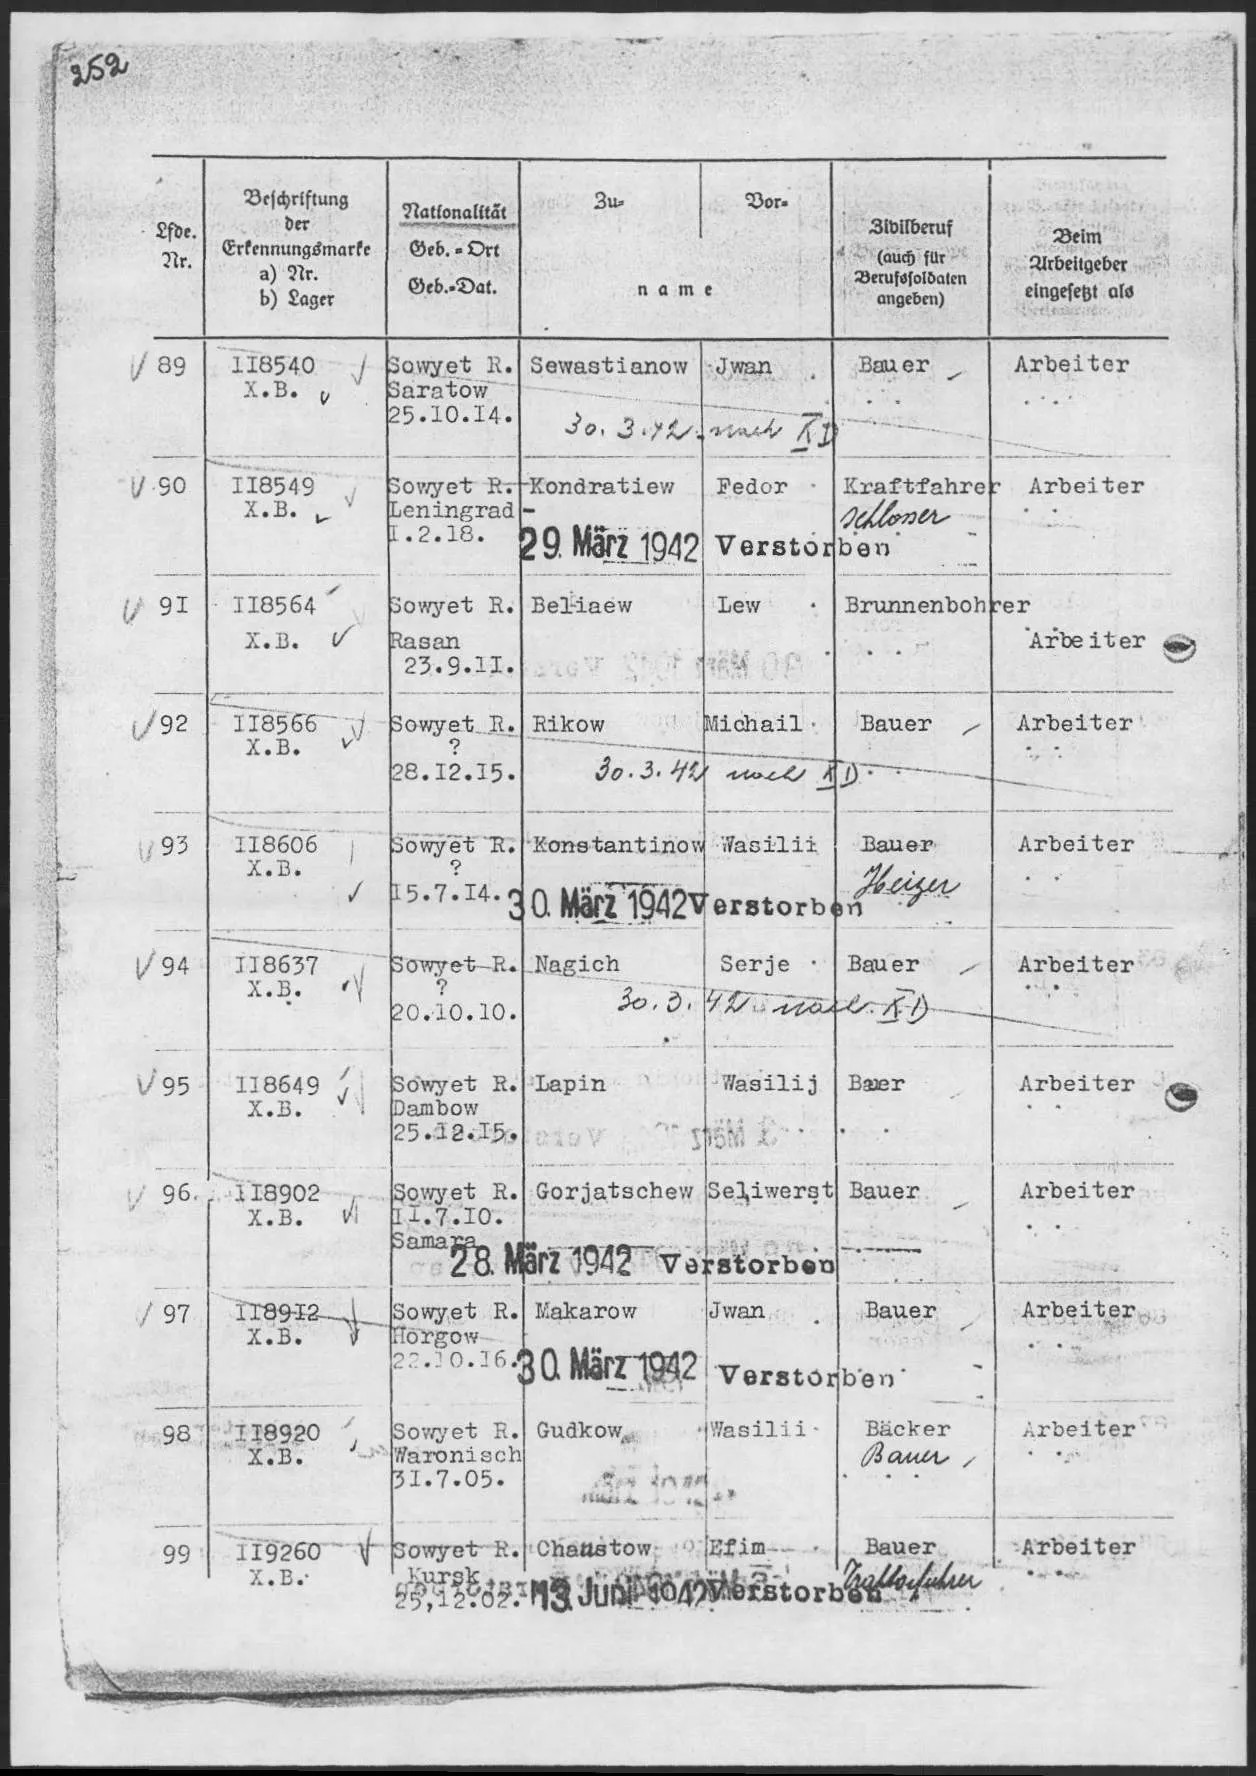 252
Lfde. Nr.
Beschriftung der Erkennungsmarke a) Nr. b) Lager
Nationalität Geb.=Ort Geb.=Dat.
Zu= Vor=
name
Zivilberuf (auch für Berufssoldaten angeben)
Beim Arbeitgeber eingesetzt als
89 II8540 Sowyet R. Sewastianow Jwan Bauer Arbeiter
X.B. Saratow
25.I0.I4. 30.3.42 nach X D
90 II8549 Sowyet R. Kondratiew Fedor Kraftfahrer Arbeiter
X.B. Leningrad - Schlosser
I.2.18. 29. März 1942 Verstorben
9I II8564 Sowyet R. Beliaew Lew Brunnenbohrer
X.B. Rasan Arbeiter
23.9.II.
92 II8566 Sowyet R. Rikow Michail Bauer Arbeiter
X.B. ?
28.I2.I5. 30.3.42 nach X D
93 II8606 Sowyet R. Konstantinow Wasilii Bauer Arbeiter
X.B. ? Heizer
I5.7.I4. 30. März 1942 Verstorben
94 II8637 Sowyet R. Nagich Serje Bauer Arbeiter
X.B. ?
20.I0.I0. 30.3.42 nach X D
95 II8649 Sowyet R. Lapin Wasilij Bauer Arbeiter
X.B. Dambow
25.I2.I5.
96. II8902 Sowyet R. Gorjatschew Seliwerst Bauer Arbeiter
X.B. II.7.I0.
Samara 28. März 1942 Verstorben
97 II89I2 Sowyet R. Makarow Jwan Bauer Arbeiter
X.B. Horgow
22.I0.I6. 30. März 1942 Verstorben
98 II8920 Sowyet R. Gudkow Wasilii Bäcker Arbeiter
X.B. Waronisch Bauer
3I.7.05.
99 II9260 Sowyet R. Chaustow Efim Bauer Arbeiter
X.B. Kursk Traktorfahrer
25,I2.02. 13. Juni 1942 Verstorben